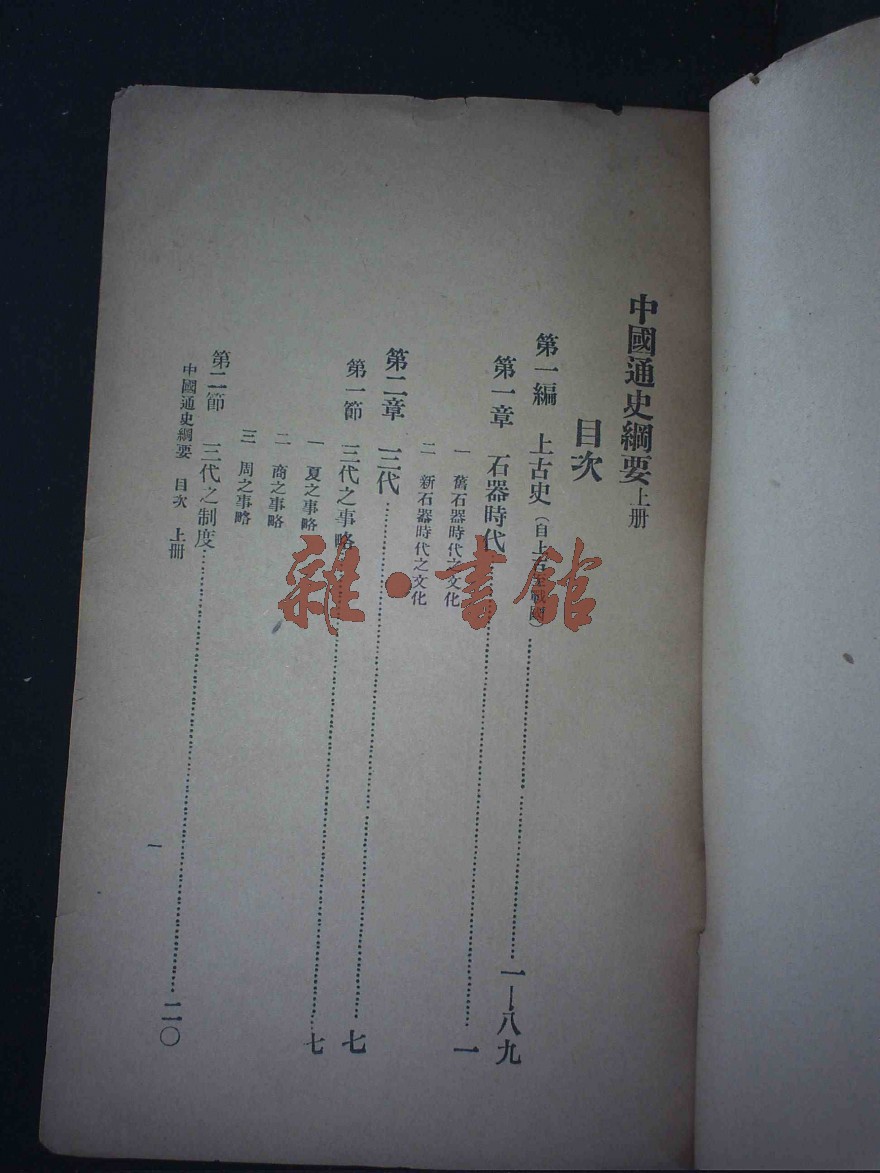 中國通史綱要上册
目次
第一編 上古史（自上古至戰國）……一—八九
第一章 石器時代……一
一 舊石器時代之文化
二 新石器時代之文化
第二章 三代……七
第一節 三代之事略……七
一 夏之事略
二 商之事略
三 周之事略
第二節 三代之制度……二〇
中國通史綱要 目次 上册
一
雜·書館